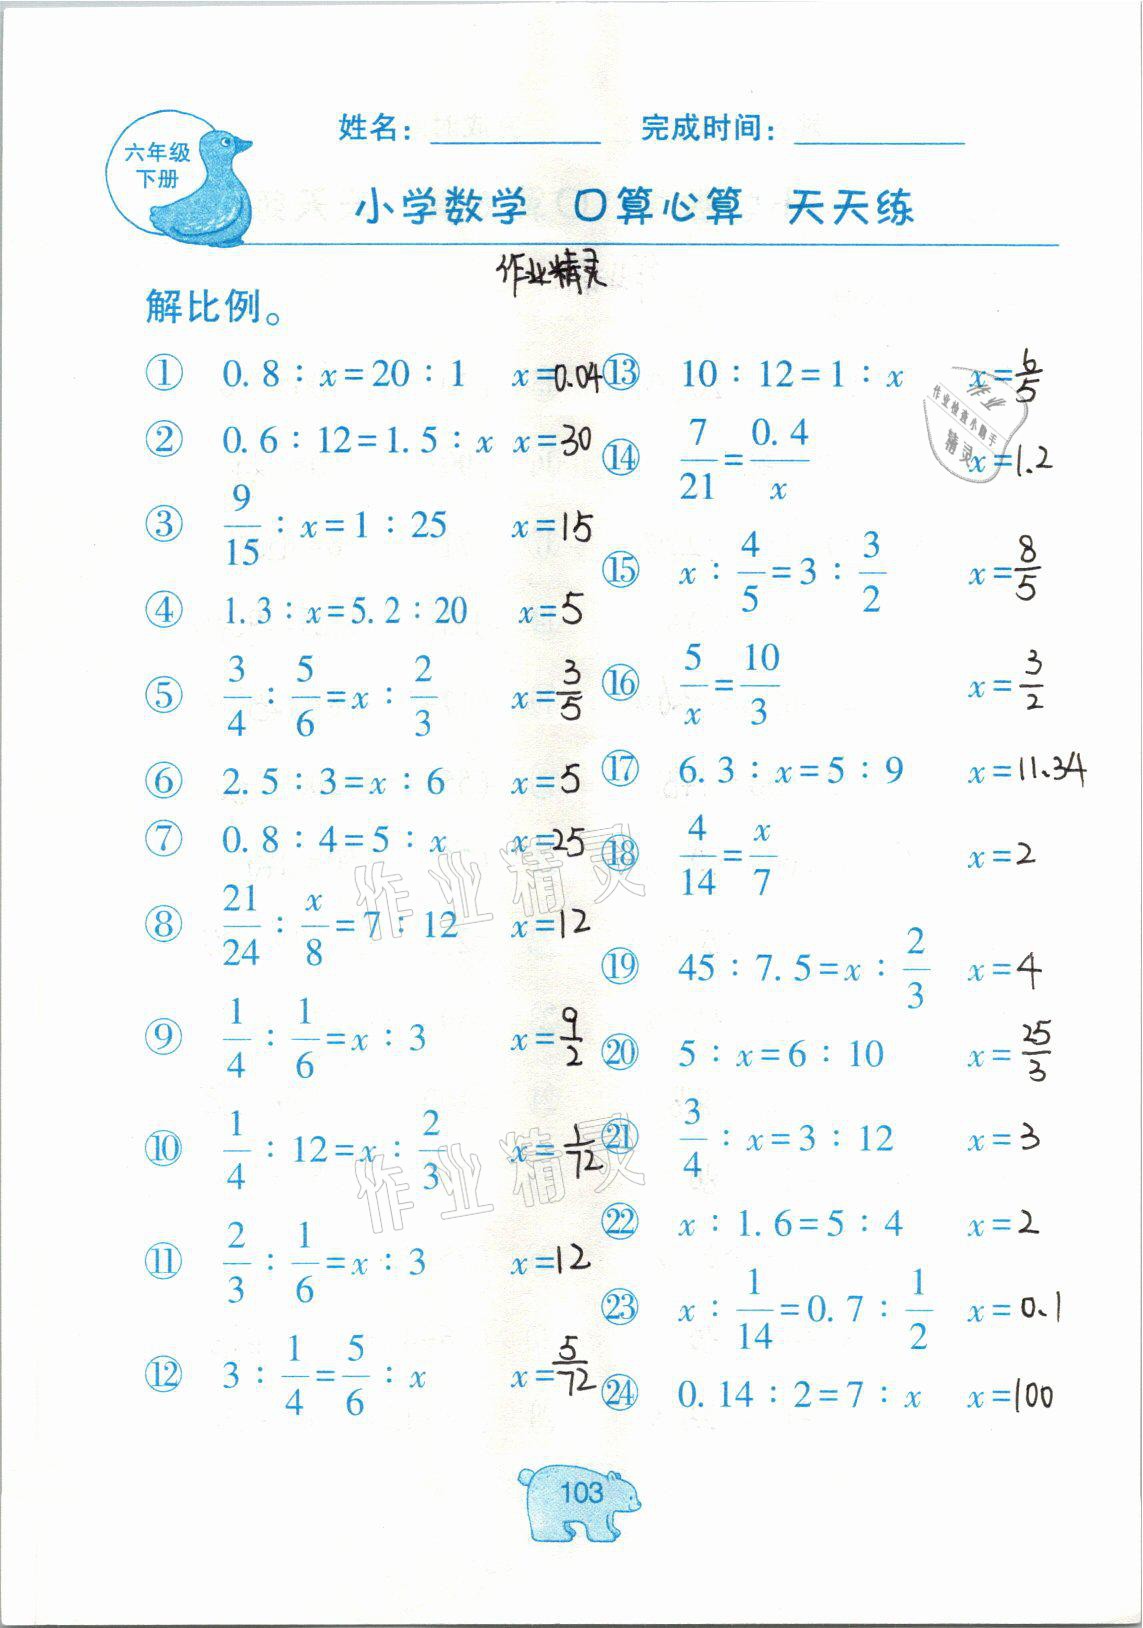 六年级
下册
姓名：
完成时间：
小学数学 口算心算 天天练
作业精灵
解比例。
① 0.8：x=20：1 x=0.04
② 0.6：12=1.5：x x=30
③ 9/15：x=1：25 x=15
④ 1.3：x=5.2：20 x=5
⑤ 3/4：5/6=x：2/3 x=3/5
⑥ 2.5：3=x：6 x=5
⑦ 0.8：4=5：x x=25
⑧ 21/24：x/8=7：12 x=12
⑨ 1/4：1/6=x：3 x=9/2
⑩ 1/4：12=x：2/3 x=1/72
⑪ 2/3：1/6=x：3 x=12
⑫ 3：1/4=5/6：x x=5/72
⑬ 10：12=1：x x=6/5
⑭ 7/21=0.4/x x=1.2
⑮ x：4/5=3：3/2 x=8/5
⑯ 5/x=10/3 x=3/2
⑰ 6.3：x=5：9 x=11.34
⑱ 4/14=x/7 x=2
⑲ 45：7.5=x：2/3 x=4
⑳ 5：x=6：10 x=25/3
㉑ 3/4：x=3：12 x=3
㉒ x：1.6=5：4 x=2
㉓ x：1/14=0.7：1/2 x=0.1
㉔ 0.14：2=7：x x=100
作业
作业检查小助手
精灵
作业精灵
作业精灵
103